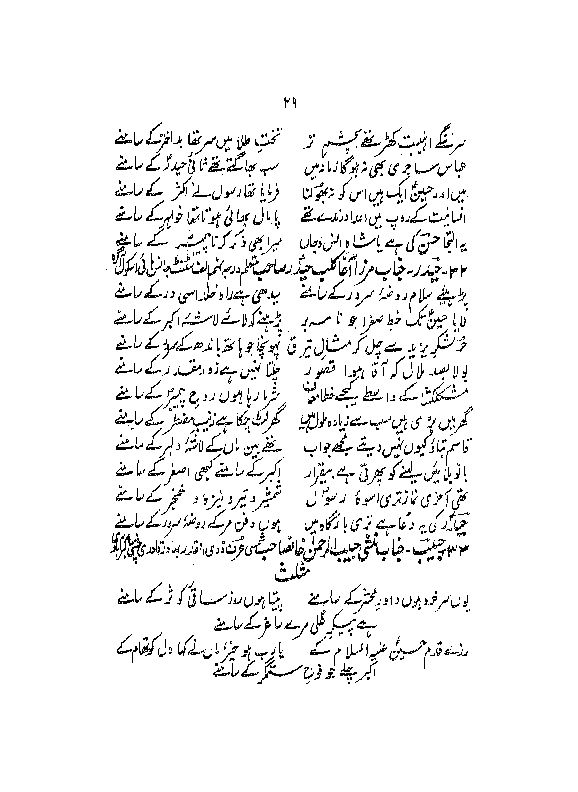 ۲۹
سرننگے اہلبیت کھڑے تھے بچشم تر تخت طلا میں سر تھا بداختر کے سامنے
عباس سا جری بھی نہ ہوگا زمانہ میں سب بھاگتے تھے ثانی حیدر کے سامنے
میں اور حسین ایک ہیں اس کو نہ بھولنا فرمایا تھا رسول نے اکثر کے سامنے
انسانیت کے روپ میں اعدا درندے تھے پامال بھائی ہوتا تھا خواہر کے سامنے
یہ التجا حسن کی ہے یا شاہ انس و جاں میرا بھی ذکر کرنا پیمبر کے سامنے
۳۲- حیدر - جناب مرزا آغا کلب حیدر صاحب متعلم درجہ
پڑھئے سلام روضۂ سرور کے سامنے سیدھی ہے راہ خلد اسی در کے سامنے
لایا حسین تک خط صغرا جو نامہ بر پڑھنے کو لائے لاشۂ اکبر کے سامنے
حر لشکر یزید سے چل کر مثال تیر پہونچا جو ہاتھ باندھ کے سرور کے سامنے
بولا بصد ملال کہ آقا ہوا قصور چلتا نہیں ہے زور مقدر کے سامنے
مشکلکشا کے واسطے کیجے خطا معاف شرما رہا ہوں روح پیمبر کے سامنے
گھر ہیں یہی ہیں سب سے زیادہ ملول ہیں گھر لٹ چکا ہے زینب مضطر کے سامنے
قاسم بتاؤ کیوں نہیں دیتے مجھے جواب تھے بین ماں کے لاشۂ دلبر کے سامنے
بانو بلائیں لینے کو پھرتی ہے بیقرار اکبر کے سامنے کبھی اصغر کے سامنے
تھی آخری نماز تری اسوۂ رسول شمشیر و تیر و نیزہ و خنجر کے سامنے
حیدر کی یہ دعا ہے تری بارگاہ میں ہوں دفن مر کے روضۂ سرور کے سامنے
۳۳- حبیب - جناب منشی حبیب الرحمن خانصاحب
مثلث
یوں سرخرو ہوں داور محشر کے سامنے بیٹھا ہوں روز ساقی کوثر کے سامنے
ہے پیکر علی مرے ساغر کے سامنے
روئے قدم حسین علیہ السلام کے یارب ہو خیر ماں نے کہا دل کو تھام کے
اکبر چلے جو فوج ستمگر کے سامنے